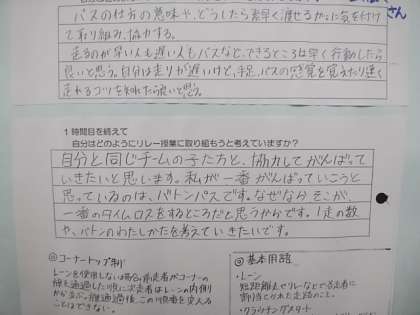 さん
パスの仕方の意味や、どうしたら素早く渡せるかなに気を付け
て取り組み、協力する。
走るのが早い人も遅い人もパスなど、できるところは早く行動したら
良いと思う。自分は走りが遅いけど、手足、パスの感覚を覚えたり速く
走れるコツを知れたら良いと思う。
1時間目を終えて
自分はどのようにリレー授業に取り組もうと考えていますか?
自分と同じチームの子たちと、協力してがんばって
いきたいと思います。私が一番がんばっていこうと
思っているのは、バトンパスです。なぜならそこが、
一番のタイムロスをするところだと思うからです。1走の数
や、バトンのわたしかたを考えていきたいです。
◎コーナートップ制
レーンを使用しない場合、前走者がコーナーの
通過した順に次走者はレーンの内側
から並ぶ。通過後、この順番を変える
ことはできない。
◎基本用語
・レーン
短距離走やリレーなどで各走者に
割り当てられた走路のこと。
・クラウチングスタート